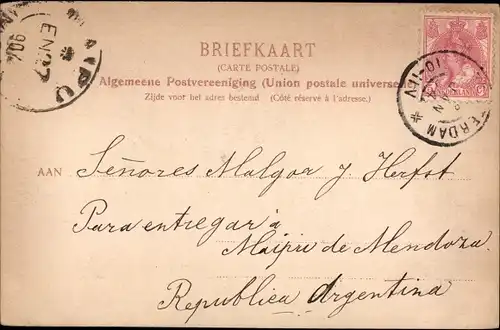 BRIEFKAART
(CARTE POSTALE)
Algemeene Postvereeniging (Union postale universe
Zijde voor het adres bestemd (Côté réservé à l'adresse.)
AAN
Señores Malgor y Herfst
Para entregar á
Maipú de Mendoza.
Republica Argentina
EN 27
906
IPU
ERDAM
10-11V